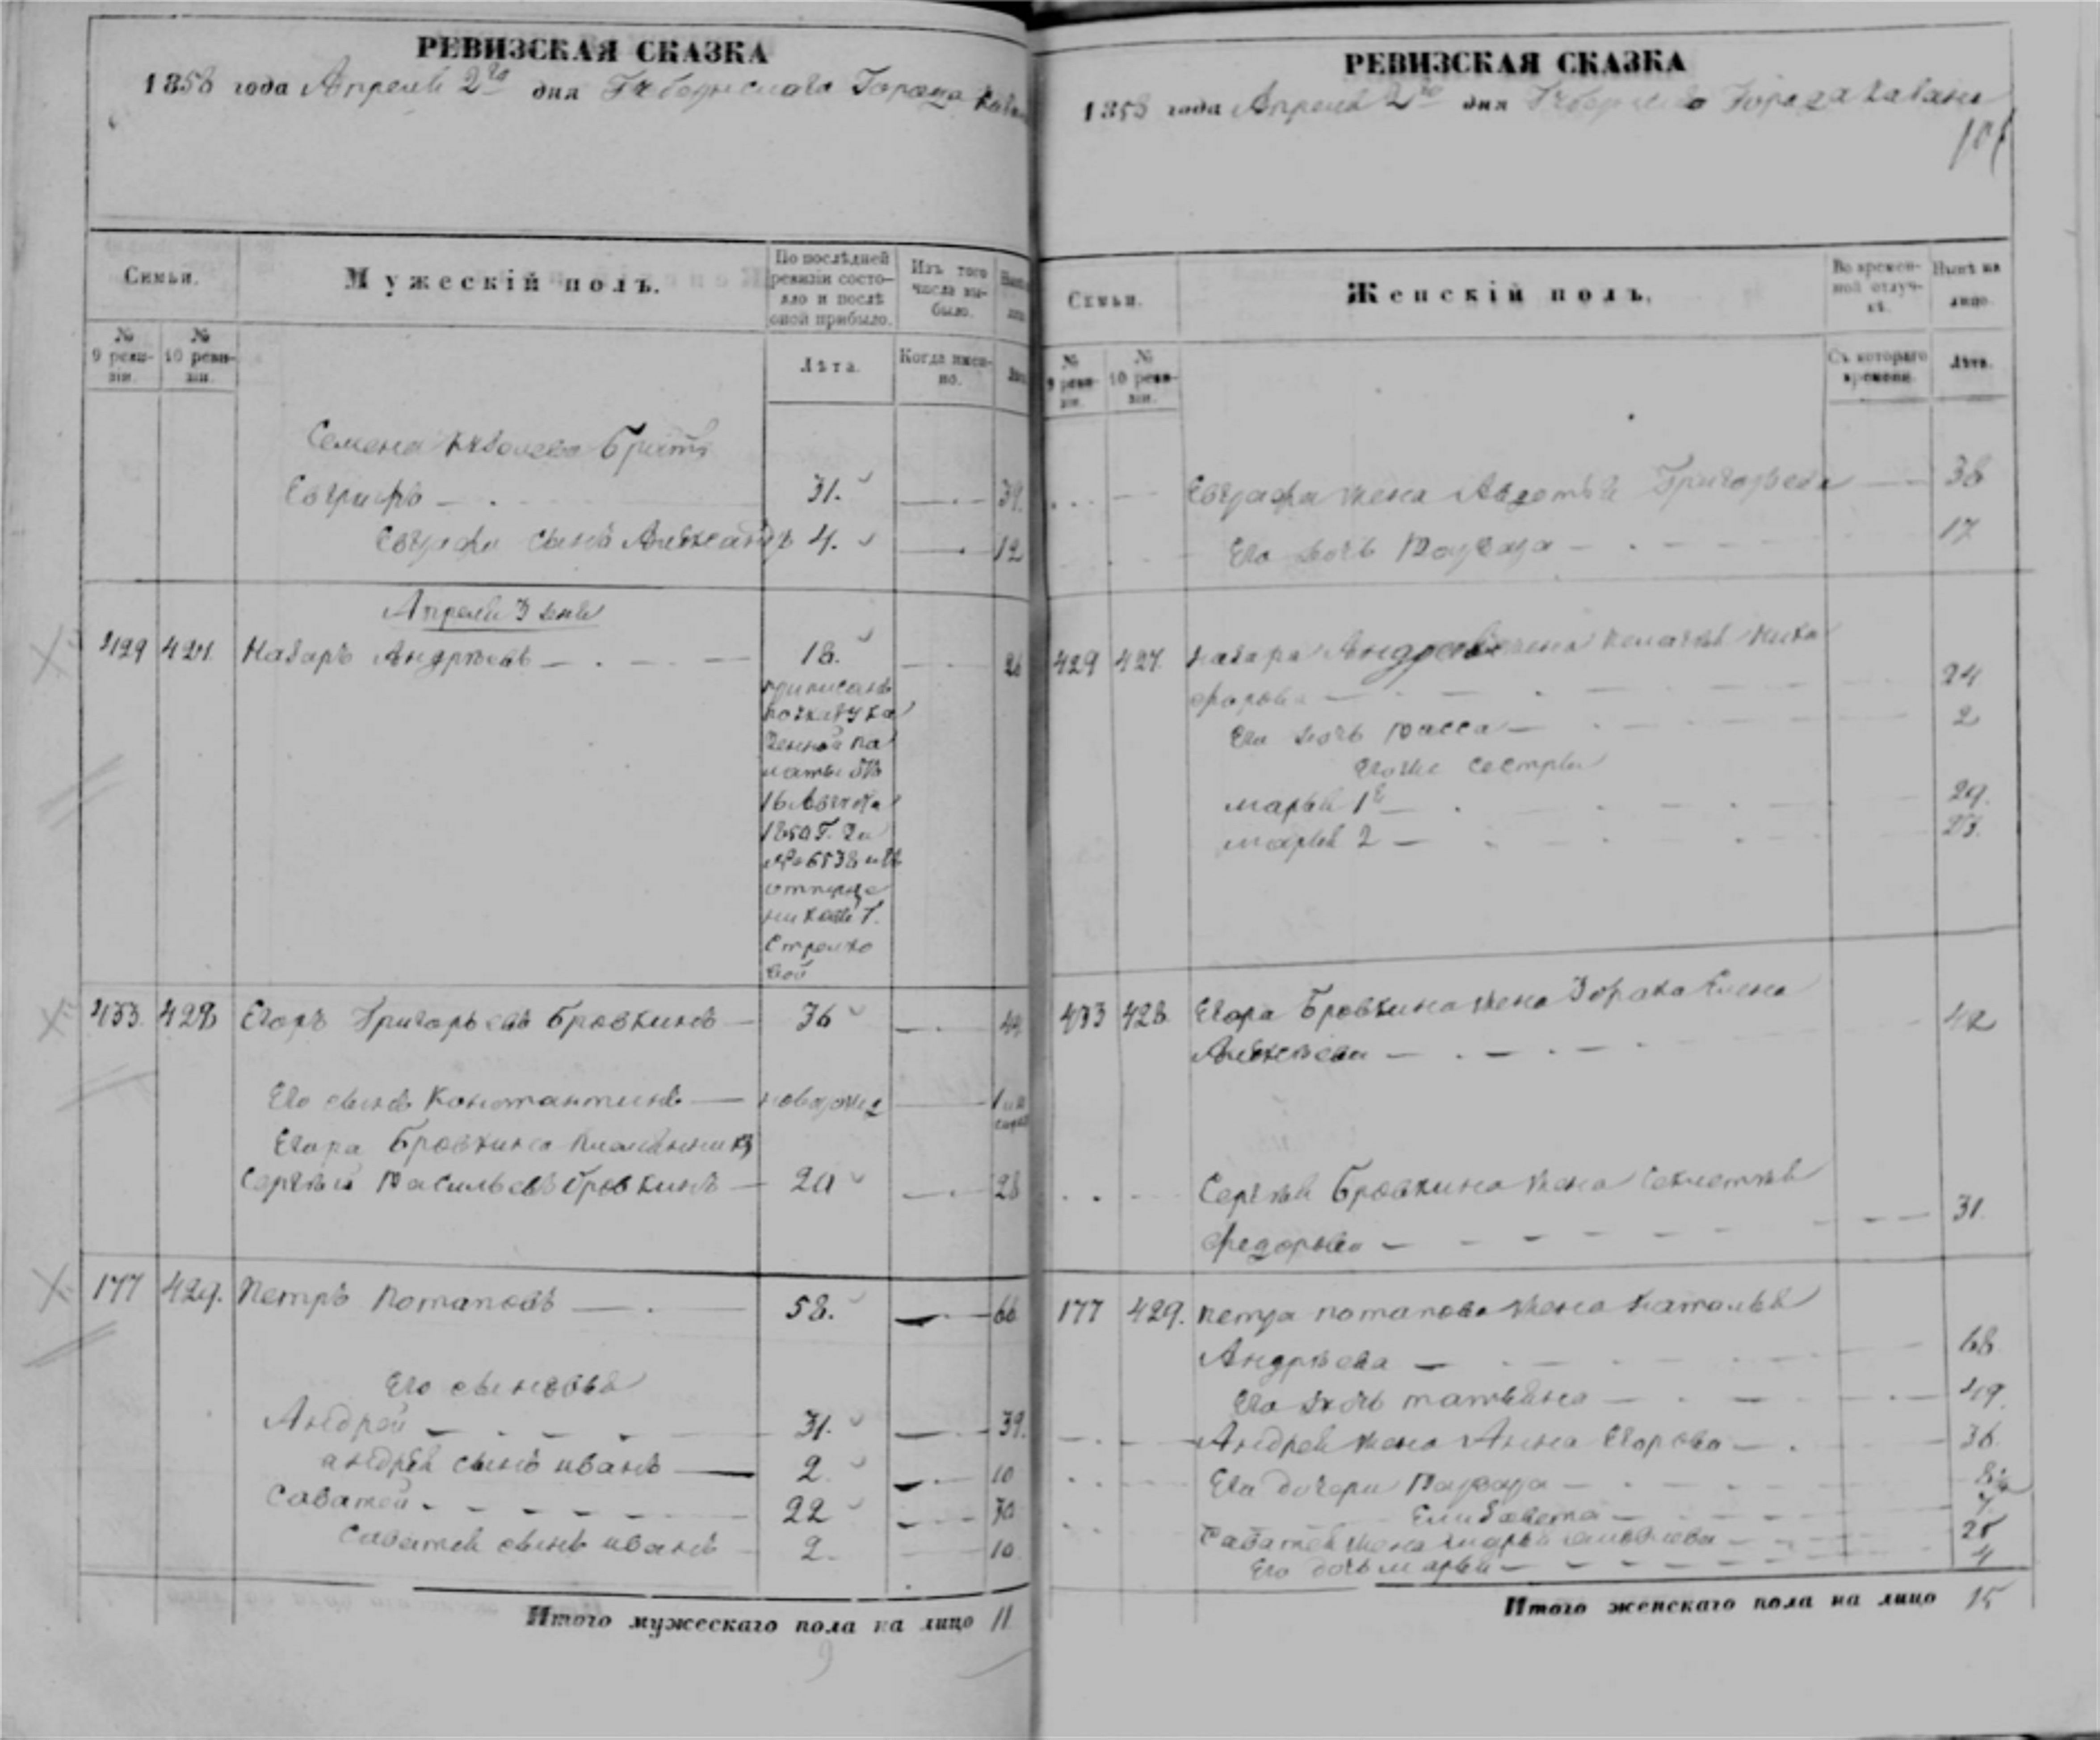 РЕВИЗСКАЯ СКАЗКА
1858 года Апреля 2го дня Города
Семьи.
Мужескій полъ.
По послѣдней ревизіи состояло и послѣ оной прибыло.
Изъ того числа выбыло.
№ 9 ревизіи.
№ 10 ревизіи.
Лѣта.
Когда именно.
Семена братъ
Евграфъ 31. 39.
Евграфа сынъ Александръ 4. 12
Апреля 3 дня
429 427. Назаръ Андрѣевъ 18. 26
приписанъ
по указу ка
зенной па
латы отъ
16 Августа
1850 Г. за
№ 6538 изъ
отпуще
г.
Стрелко
вой
433. 428 Егоръ Григорьевъ Бровкинъ 36 44
Его сынъ Константинъ новорожд
Егора Бровкина племянникъ
Сергѣй Васильевъ Бровкинъ 20 28
177 429. Петръ Потаповъ 58. 66
Его сыновья
Андрей 31. 39.
андрея сынъ иванъ 2 10
Саватей 22 30
Саватея сынъ иванъ 2. 10
Итого мужескаго пола на лицо 11
9
РЕВИЗСКАЯ СКАЗКА
1858 года Апреля 2го дня Города
Семьи.
Женскій полъ.
Во временной отлучкѣ.
Нынѣ на лицо.
№ 9 ревизіи.
№ 10 ревизіи.
Съ котораго времени.
Лѣта.
Евграфа жена Авдотья Григорьева 38
Его дочь Варвара 17
429 427. Назара Андреева жена Ники
форова 24
Его дочь Васса 2
Егоже сестры
марья 1я 29.
марья 2
433 428. Егора Бровкина жена
Алексѣева 42
Сергѣя Бровкина жена
Федорова 31.
177 429. петра потапова жена Наталья
Андрѣева 68
Его дочь татьяна 49.
Андрея жена Анна Егорова 36
Его дочери Варвара
Елизавета 7
Саватея жена марья 25
Его дочь марья 4
Итого женскаго пола на лицо 15